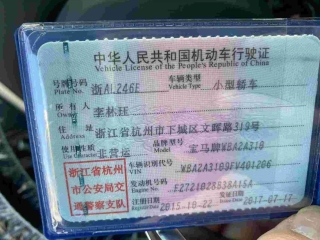 中华人民共和国机动车行驶证
Vehicle License of the People's Republic of China
号牌号码 浙AL246E 车辆类型 小型轿车
Plate No. Vehicle Type
所有人 李林珏
Owner
住址 浙江省杭州市下城区文晖路319号
Address
使用性质 非营运 品牌型号 宝马牌WBA2A310
Use Character Model
浙江省杭州 车辆识别代号 WBA2A3109FV401206
市公安局交 发动机号码 F2721028838A15A
通警察支队 注册日期 2015-10-22 发证日期 2017-07-17